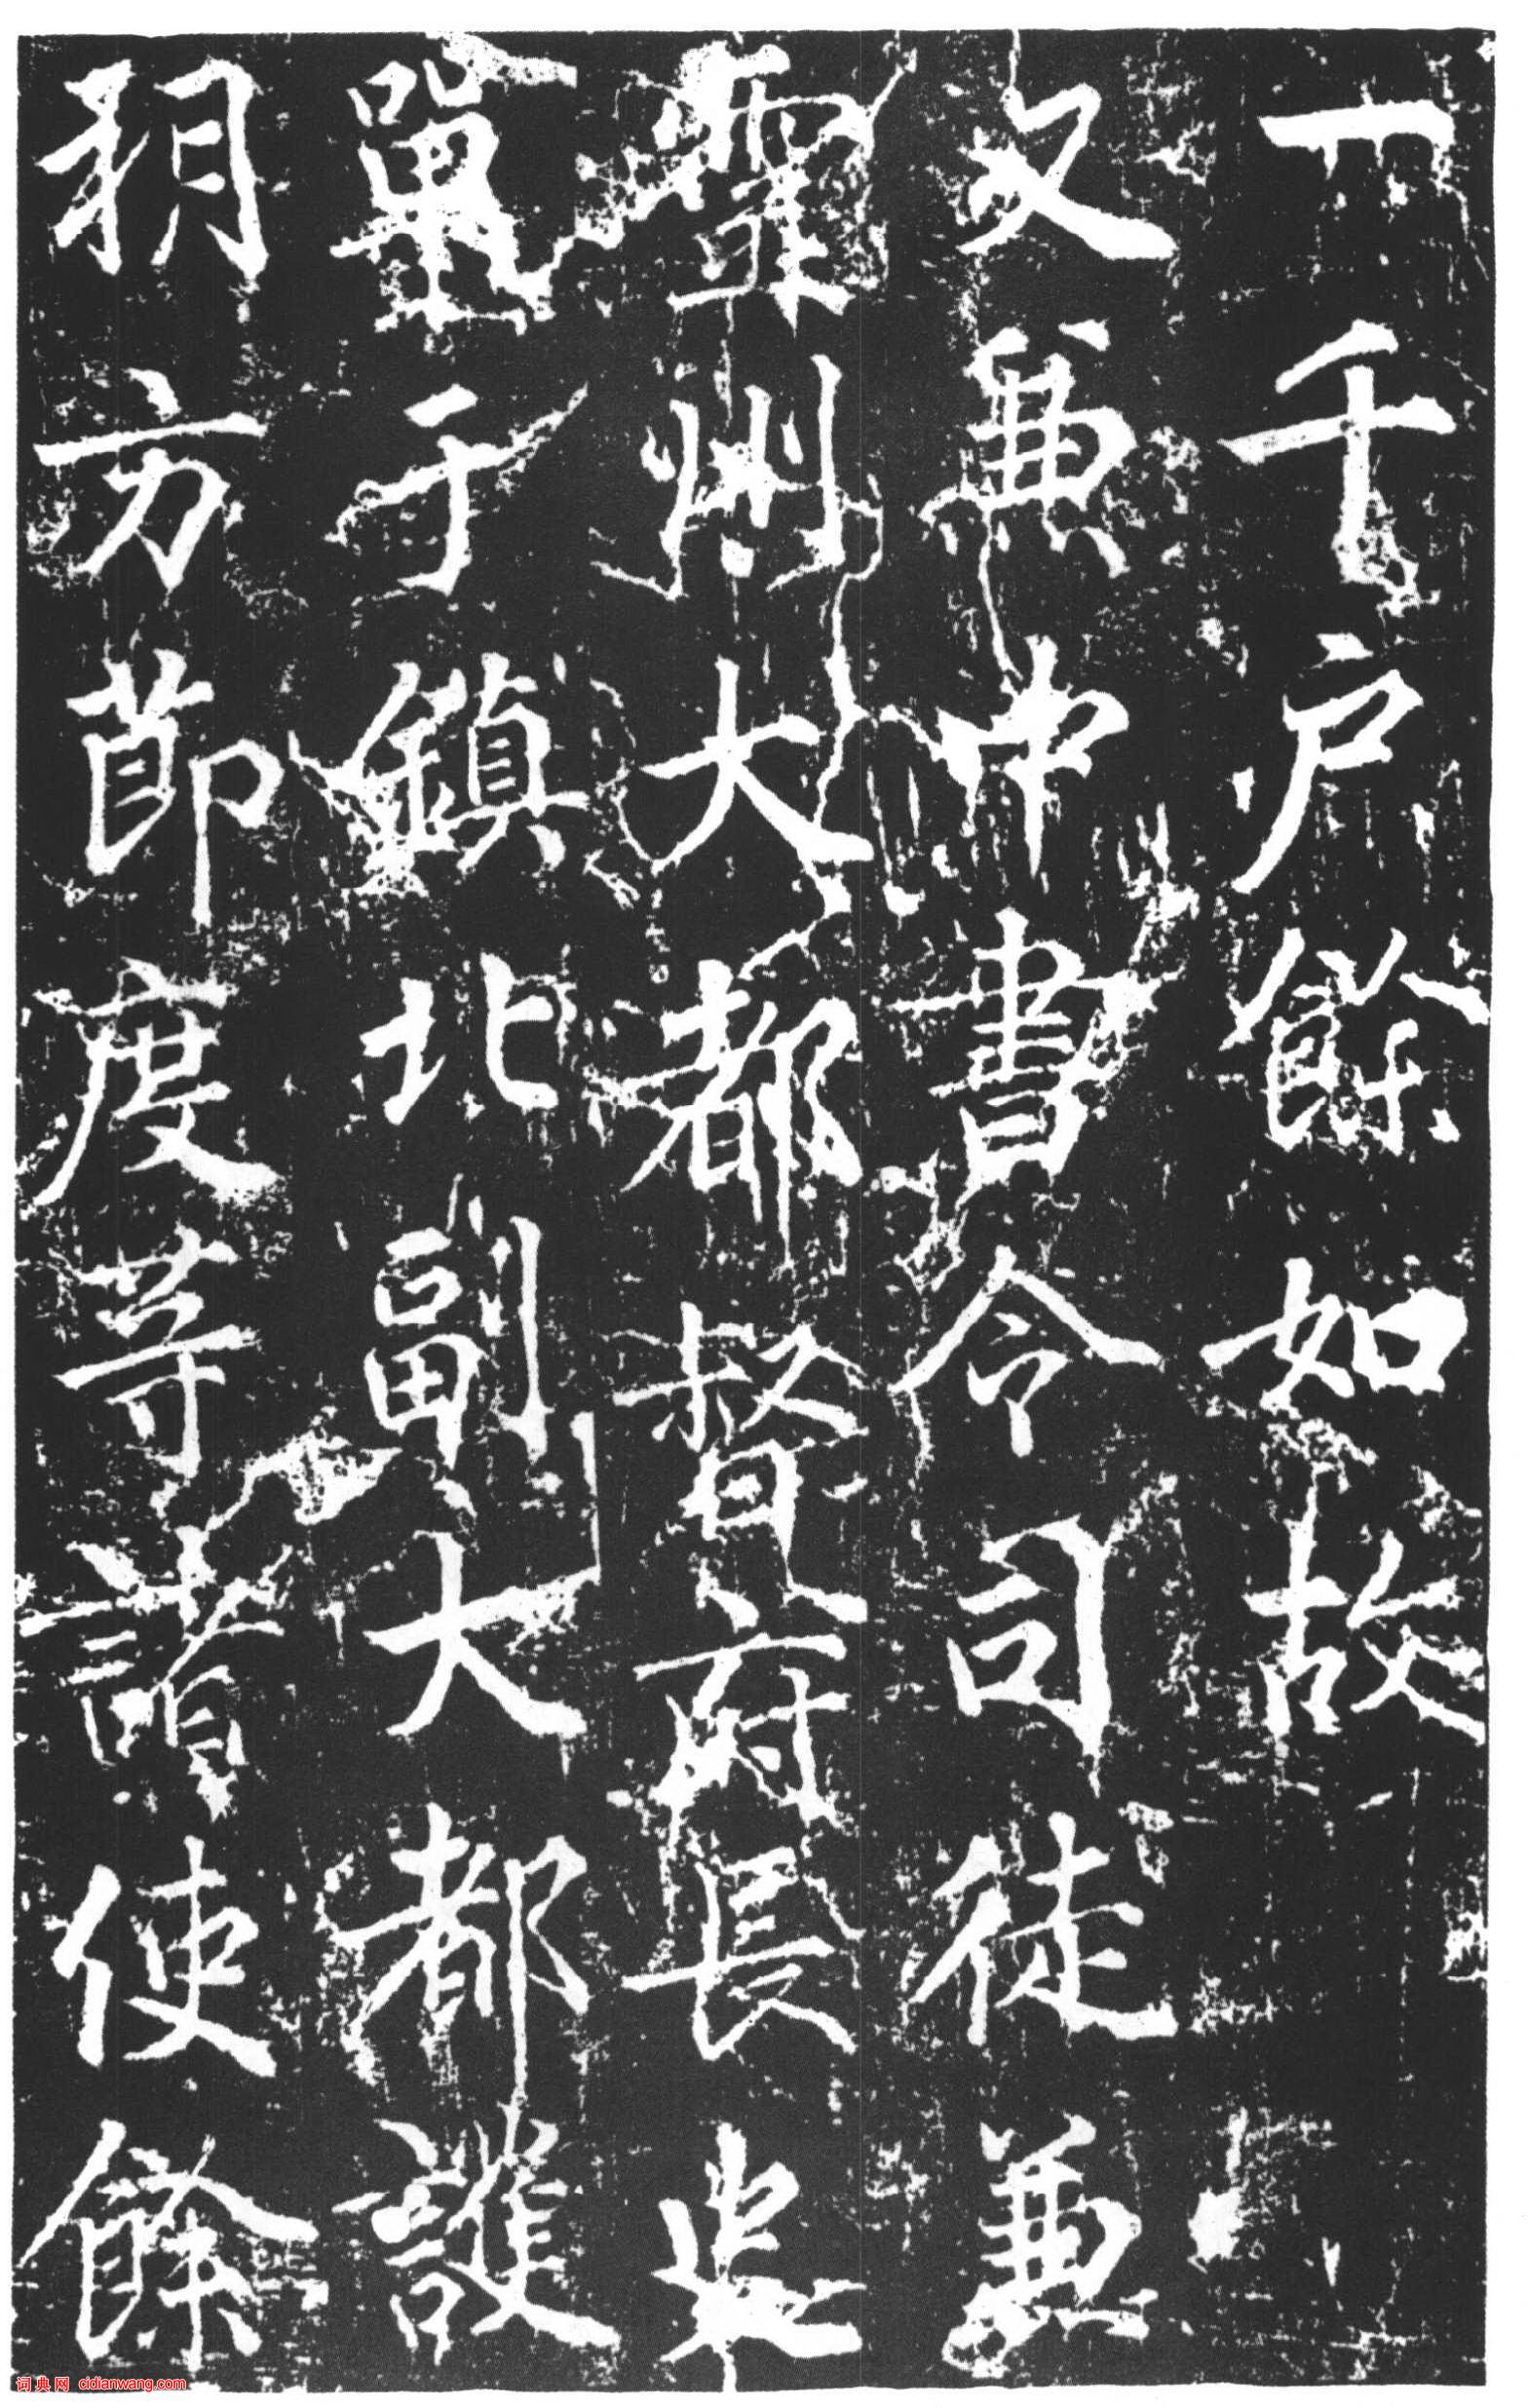 千户餘如故
又兼中書令司徒兼
靈州大都督府長史
單于鎮北副大都護
朔方節度等諸使餘
词典网 cidianwang.com